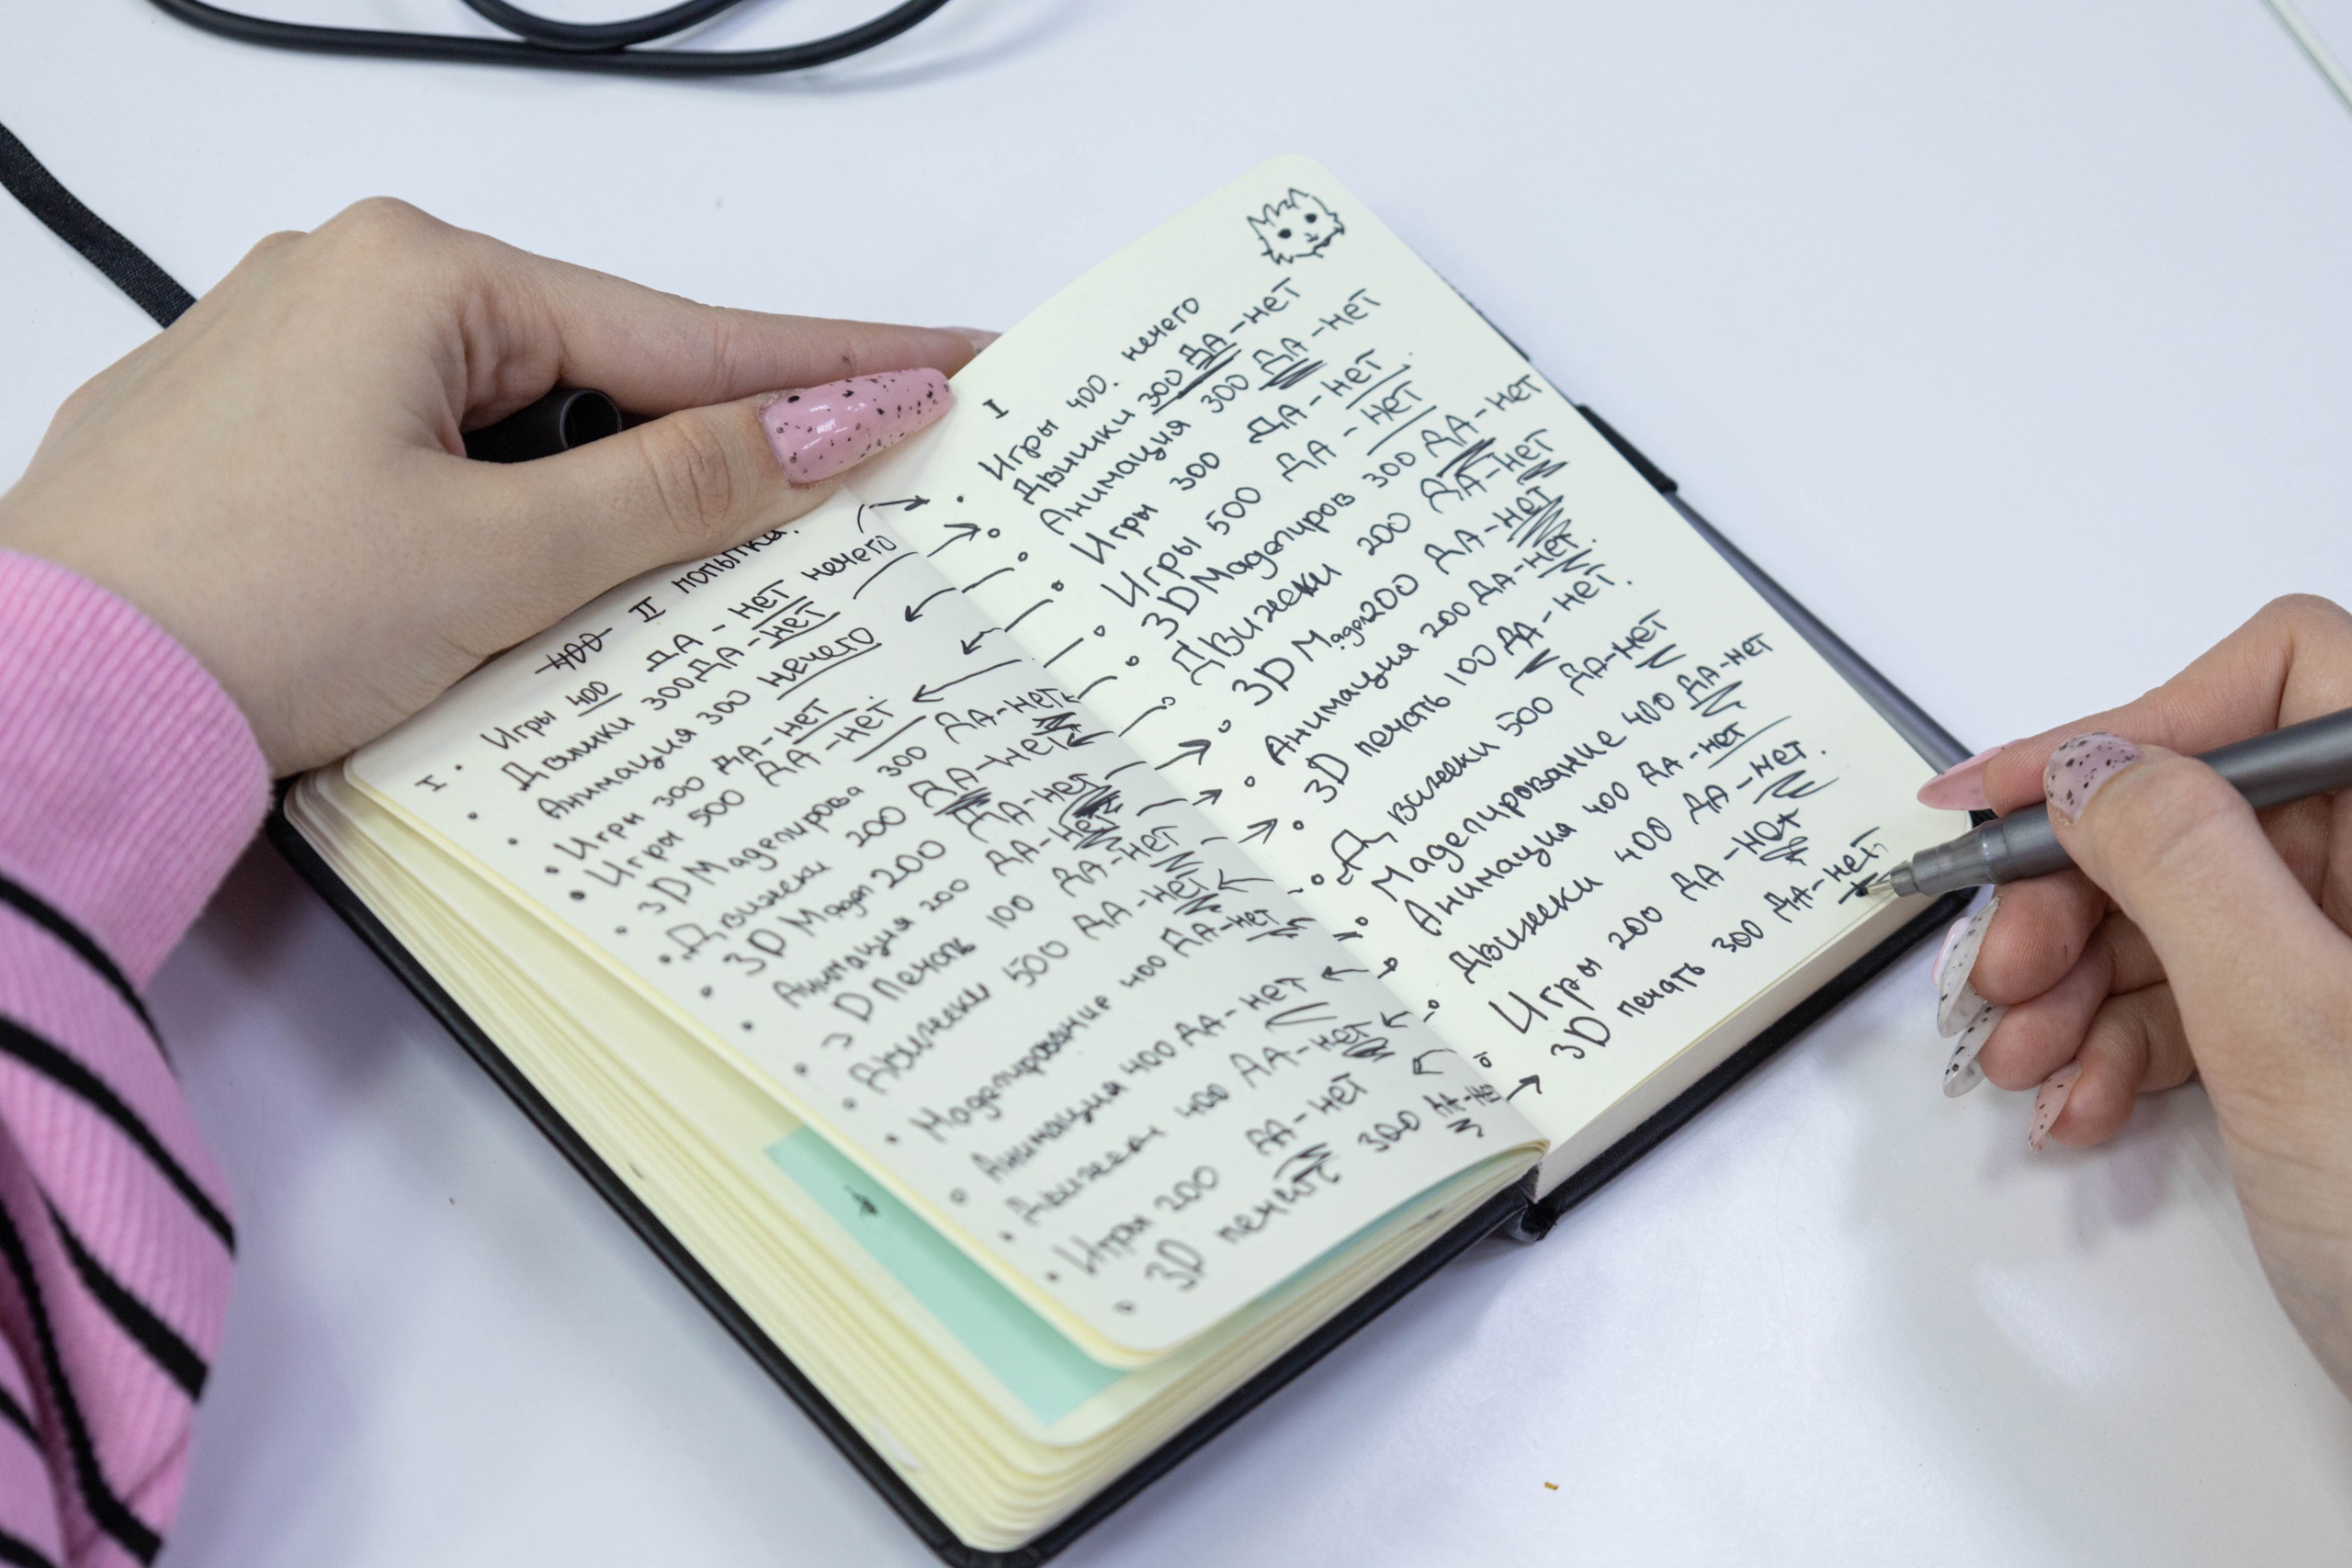 II попытка.
400
I.
Игры 400 ДА - нет нечего
Движки 300 ДА - нет
Анимация 300 нечего
Игры 300 ДА - нет
Игры 500 ДА - нет
3D Маделирова 300 ДА - нет
Движеки 200 ДА - нет
3D Мадел 200 ДА - нет
Анимация 200 ДА - нет
3D Печать 100 ДА - нет
Движеки 500 ДА - нет
Маделирование 400 ДА - нет
Анимация 400 ДА - нет
Движеки 400 ДА - нет
Игры 200 ДА - нет
3D печать 300 ДА -
I
Игры 400. нечего
Движки 300 ДА - нет
Анимация 300 ДА - нет
Игры 300 ДА - нет
Игры 500 ДА - нет
3D Маделиров 300 ДА - нет
Движеки 200 ДА - нет
3D Мадел 200 ДА - нет
Анимация 200 ДА - нет.
3D печать 100 ДА - нет.
Движеки 500 ДА - нет
Маделирование 400 ДА - нет
Анимация 400 ДА - нет
Движеки 400 ДА - нет.
Игры 200 ДА - нет
3D печать 300 ДА - нет.